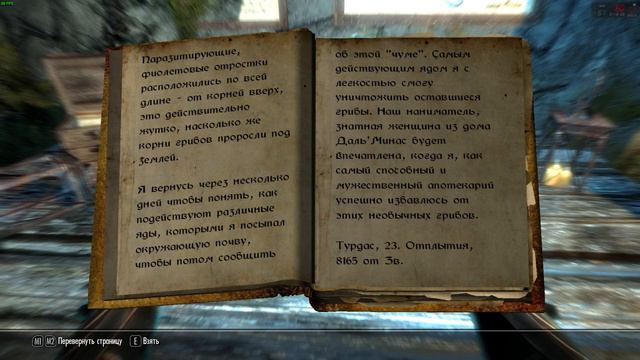 Паразитирующие,
фиолетовые отростки
расположились по всей
длине - от корней вверх,
это действительно
жутко, насколько же
корни грибов проросли под
землей.
Я вернусь через несколько
дней чтобы понять, как
подействуют различные
яды, которыми я посыпал
окружающую почву,
чтобы потом сообщить
об этой "чуме". Самым
действующим ядом я с
легкостью смогу
уничтожить оставшиеся
грибы. Наш наниматель,
знатная женщина из дома
Даль'Минас будет
впечатлена, когда я, как
самый способный и
мужественный апотекарий
успешно избавлюсь от
этих необычных грибов.
Турдас, 23. Отплытия,
8165 от Зв.
M1 M2 Перевернуть страницу E Взять